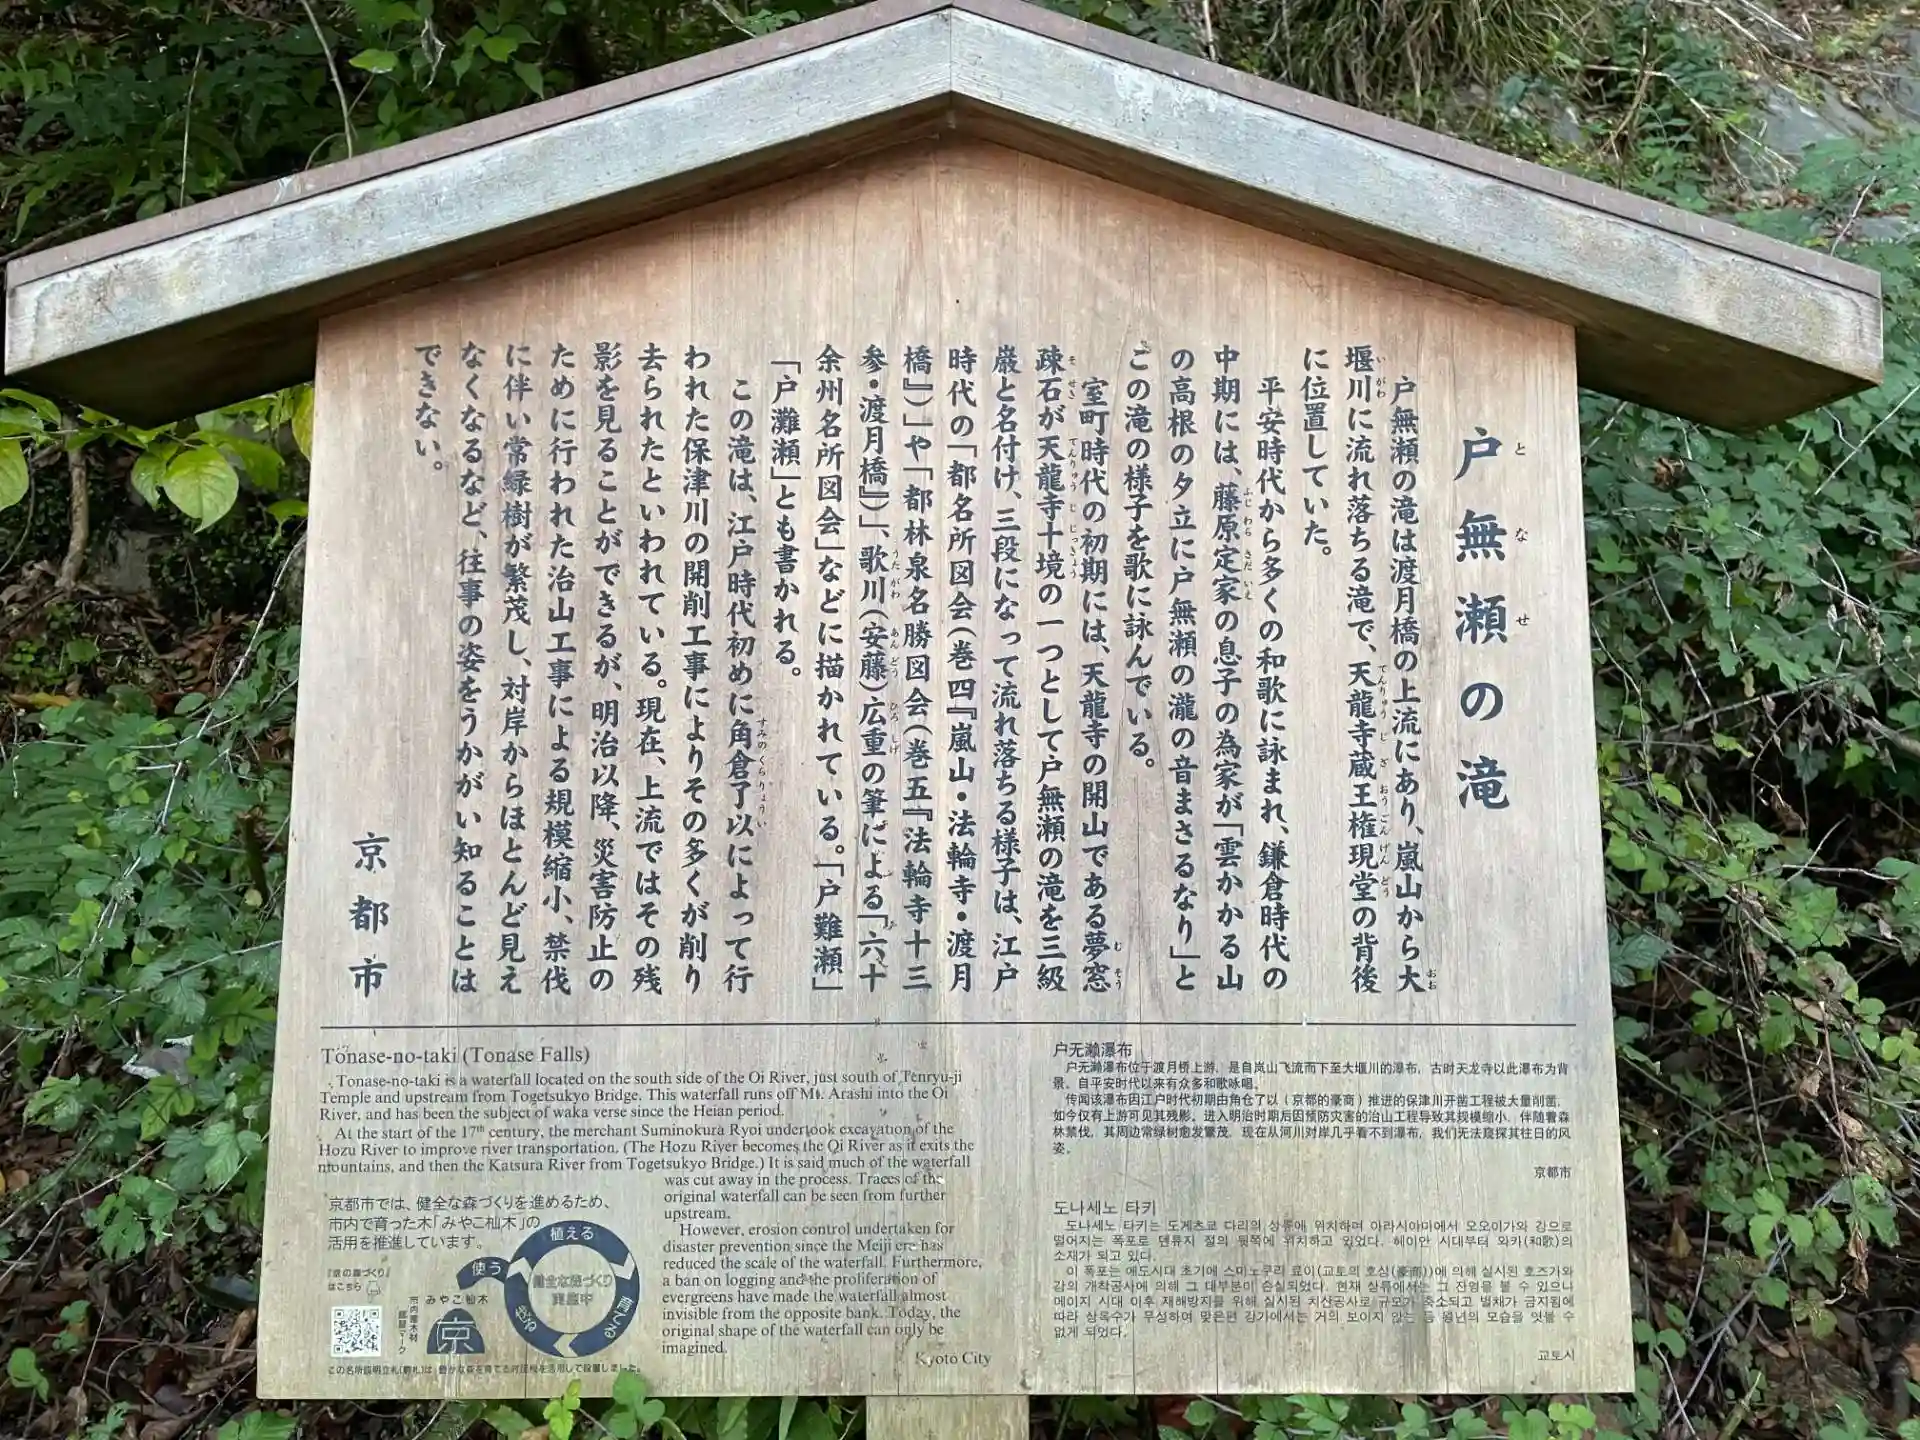 戸無瀬の滝
となせ
戸無瀬の滝は渡月橋の上流にあり、嵐山から大
堰川に流れ落ちる滝で、天龍寺蔵王権現堂の背後
に位置していた。
平安時代から多くの和歌に詠まれ、鎌倉時代の
中期には、藤原定家の息子の為家が「雲かかる山
の高根の夕立に戸無瀬の瀧の音まさるなり」と
この滝の様子を歌に詠んでいる。
室町時代の初期には、天龍寺の開山である夢窓
疎石が天龍寺十境の一つとして戸無瀬の滝を三級
巌と名付け、三段になって流れ落ちる様子は、江戸
時代の「都名所図会（巻四『嵐山・法輪寺・渡月
橋』）」や「都林泉名勝図会（巻五『法輪寺十三
参・渡月橋』）」、歌川（安藤）広重の筆による「六十
余州名所図会」などに描かれている。「戸難瀬」
「戸灘瀬」とも書かれる。
この滝は、江戸時代初めに角倉了以によって行
われた保津川の開削工事によりその多くが削り
去られたといわれている。現在、上流ではその残
影を見ることができるが、明治以降、災害防止の
ために行われた治山工事による規模縮小、禁伐
に伴い常緑樹が繁茂し、対岸からほとんど見え
なくなるなど、往事の姿をうかがい知ることは
できない。
京都市
Tonase-no-taki (Tonase Falls)
Tonase-no-taki is a waterfall located on the south side of the Oi River, just south of Tenryu-ji
Temple and upstream from Togetsukyo Bridge. This waterfall runs off Mt. Arashi into the Oi
River, and has been the subject of waka verse since the Heian period.
At the start of the 17th century, the merchant Suminokura Ryoi undertook excavation of the
Hozu River to improve river transportation. (The Hozu River becomes the Oi River as it exits the
mountains, and then the Katsura River from Togetsukyo Bridge.) It is said much of the waterfall
was cut away in the process. Traces of the
original waterfall can be seen from further
upstream.
However, erosion control undertaken for
disaster prevention since the Meiji era has
reduced the scale of the waterfall. Furthermore,
a ban on logging and the proliferation of
evergreens have made the waterfall almost
invisible from the opposite bank. Today, the
original shape of the waterfall can only be
imagined.
Kyoto City
京都市では、健全な森づくりを進めるため、
市内で育った木「みやこ杣木」の
活用を推進しています。
『京の森づくり』
はこちら
市内産木材
認証マーク
みやこ杣木
京
植える
使う
育てる
健全な森づくり
実施中
户无濑瀑布
户无濑瀑布位于渡月桥上游，是自岚山飞流而下至大堰川的瀑布，古时天龙寺以此瀑布为背
景。自平安时代以来有众多和歌咏唱。
传闻该瀑布因江户时代初期由角仓了以（京都的豪商）推进的保津川开凿工程被大量削凿，
如今仅有上游可见其残影。进入明治时期后因预防灾害的治山工程导致其规模缩小，伴随着森
林禁伐，其周边常绿树愈发繁茂，现在从河川对岸几乎看不到瀑布，我们无法窥探其往日的风
姿。
京都市
도나세노 타키
도나세노 타키는 도게츠쿄 다리의 상류에 위치하며 아라시야마에서 오오이가와 강으로
떨어지는 폭포로 덴류지 절의 뒷쪽에 위치하고 있었다. 헤이안 시대부터 와카(和歌)의
소재가 되고 있다.
이 폭포는 에도시대 초기에 스미노쿠라 료이(교토의 호상(豪商))에 의해 실시된 호즈가와
강의 개착공사에 의해 그 대부분이 손실되었다. 현재 상류에서는 그 잔영을 볼 수 있으나
메이지 시대 이후 재해방지를 위해 실시된 치산공사로 규모가 축소되고 벌채가 금지됨에
따라 상록수가 무성하여 맞은편 강가에서는 거의 보이지 않는 등 왕년의 모습을 엿볼 수
없게 되었다.
교토시